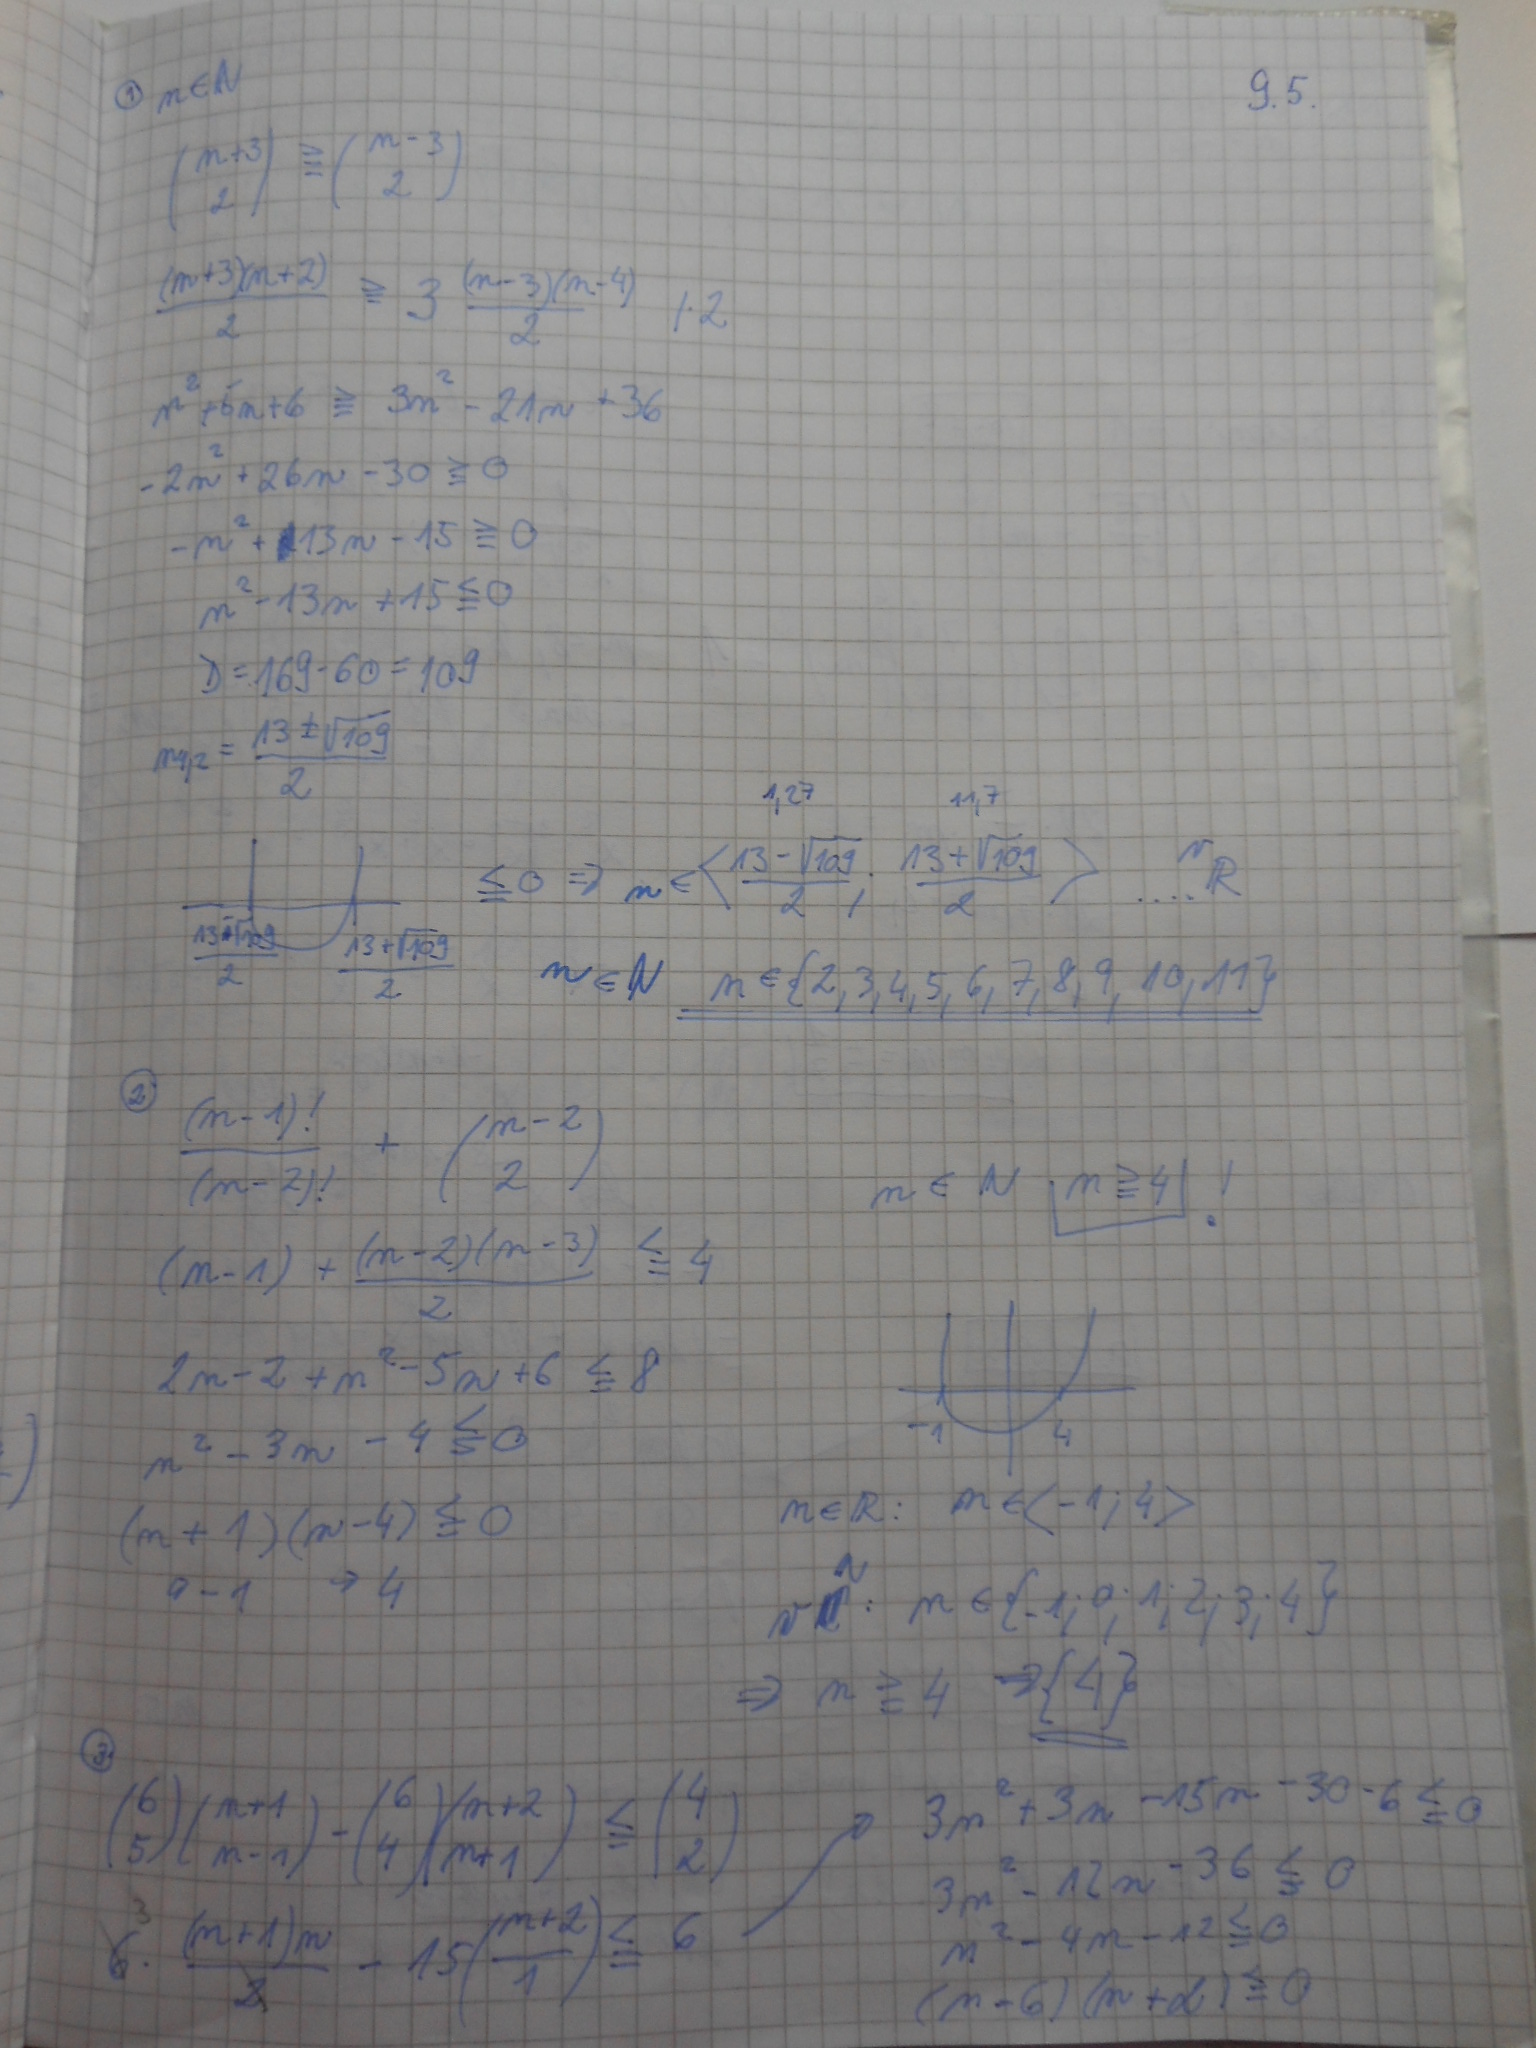 9.5.
① n∈N
(n+3 2) ≧ (n-3 2)
(n+3)(n+2)/2 ≧ 3 (n-3)(n-4)/2 /·2
n²+5n+6 ≧ 3n² - 21n + 36
-2n² + 26n - 30 ≧ 0
-n² + 13n - 15 ≧ 0
n² - 13n + 15 ≦ 0
D = 169 - 60 = 109
n₁,₂ = 13 ± √109 / 2
1,27 11,7
≦ 0 ⇒ n ∈ ⟨ 13 - √109 / 2 ; 13 + √109 / 2 ⟩ .... v R
13-√109 / 2 13+√109 / 2
n∈N n∈{2,3,4,5,6,7,8,9,10,11}
② (n-1)! / (n-2)! + (n-2 2)
n ∈ N n ≧ 4 !
(n-1) + (n-2)(n-3) / 2 ≦ 4
2n-2 + n² - 5n + 6 ≦ 8
n² - 3n - 4 ≦ 0
(n+1)(n-4) ≦ 0
-1 → 4
-1 4
n∈R: n∈⟨-1;4⟩
v N: n∈{-1;0;1;2;3;4}
⇒ n ≧ 4 → {4}
③
(6 5)(n+1 n-1) - (6 4)(n+2 n+1) ≦ (4 2)
6· 3 (n+1)n / 2 - 15 (n+2 / 1) ≦ 6
3n² + 3n - 15n - 30 - 6 ≦ 0
3n² - 12n - 36 ≦ 0
n² - 4n - 12 ≦ 0
(n-6)(n+2) ≦ 0